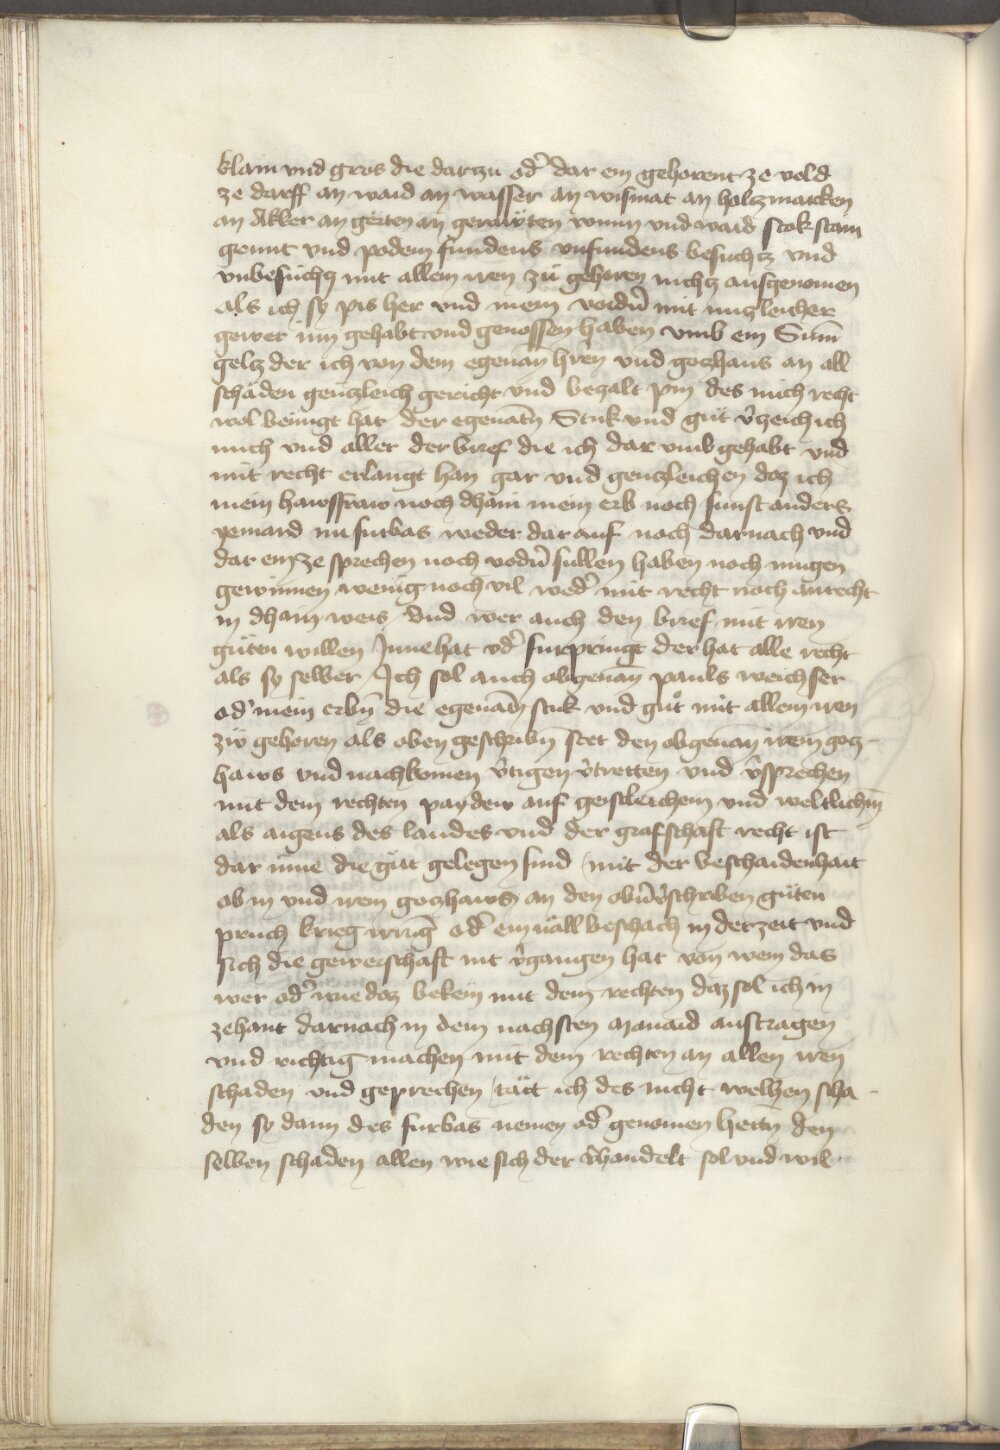 klain vnd gros die darzu od̉ dar ein gehorent ze veld
ze dorff an waid an wasser an wismat an holczmarcken
an Akker an gërten an gerauten wunn vnd waid stok stain
grunt vnd podem fundens vnfundens besuchcz vnd
vnbesuchcz mit allem iren zů gehoren nichcz ausgenomen
als ich sy pis her vnd mein vordn̉ mit nuczleicher
gewer inn gehabt vnd genossen haben vmb ein Sum̄
gelcz der ich von dem egenan̄ hren vnd goczhaus an all
schäden genczleich gericht vnd beczalt pin des mich recht
wol benügt hat der egenatn̄ Stuk vnd gůt v̉zeich ich
mich vnd aller der brief die ich dar vmb gehabt vnd
mit recht erlangt han gar vnd genczleichen daz ich
mein hawsfraw noch dhain mein erb noch sunst anders
yemand nu furbas weder dar auf noch darnach vnd
dar ein ze sprechen noch vodn̉ sullen haben noch mugen
gewinnen wenig noch vil wed̉ mit recht noch anrecht
in dhain weis Vnd wer auch den brief mit iren
gůten willen Innehat od̉ furpringt der hat alle recht
als sy selber Ich sol auch obgenan̄ pauls weichser
od̉ mein erbn̄ die egenan̄ stuk vnd gůt mit allem iren
zw̉ gehoren als oben geschribn̄ stet den obgenan̄ irem gocz-
haws vnd nachkomen v̉tigen v̉tretten vnd v̉sprechen
mit dem rechten payden auf geistleichem vnd weltlichm̄
als aigens des landes vnd der grafschaft recht ist
dar inne die gůt gelegen sind / mit der beschaidenhait
ob in vnd irem goczhaws an den obn̄v̉schriben gůten
pruch krieg irruḡ od̉ ein uäll beschäch in der zeit vnd
sich die gewerschaft nit v̉gangen hat von wem das
wer od̉ wie daz bekem mit dem rechten daz sol ich in
zehant darnach in dem nachsten manaid austragen
vnd richtig machen mit dem rechten an allen iren
schaden vnd geprechen / tätt ich des nicht welhen scha-
den sy dann des furbas nemen od̉ genomen hettn̄ den
selben schaden allen wie sich der v̉handelt sol vnd wil